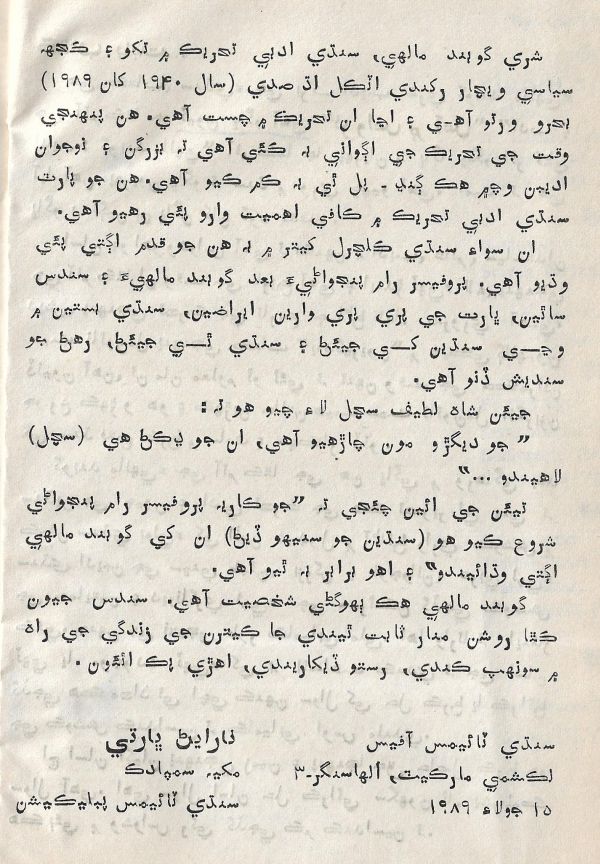 شري گوبند مالهي، سنڌي ادبي تحريڪ ۾ تکو ۽ ڪجهہ
سياسي ويچار رکندي اٽڪل اڌ صدي (سال ۱۹۴۰ کان ۱۹۸۹)
بحرو ورتو آهي ۽ اڃا ان تحريڪ ۾ چست آهي. هن پنهنجي
وقت جي تحريڪ جي اڳواڻي بہ ڪئي آهي تہ بزرگن ۽ نوجوان
اديبن وچ ۾ هڪ ڳنڍ - پل ٿي بہ ڪم ڪيو آهي. هن جو پارٽ
سنڌي ادبي تحريڪ ۾ ڪافي اهميت وارو پئي رهيو آهي.
ان سواء سنڌي ڪلچرل کيتر ۾ بہ هن جو قدم اڳتي پئي
وڌيو آهي. پروفيسر رام پنجواڻيء بعد گوبند مالهيء ۽ سندس
ساٿين، ڀارت جي پري پري وارين ايراضين، سنڌي بستين ۾
وڃي سنڌين کي جيئڻ ۽ سنڌي ٿي جيئڻ، رهڻ جو
سنديش ڏنو آهي.
جيئن شاه لطيف سچل لاء چيو هو تہ :
” جو ديگڙو مون چاڙهيو آهي، ان جو ڍڪڻ هي (سچل)
لاهيندو ...”
تيئن جي ائين چئجي تہ ”جو ڪاريہ پروفيسر رام پنجواڻي
شروع ڪيو هو (سنڌين جو سنيهو ڏيڻ) ان کي گوبند مالهي
اڳتي وڌائيندو” ۽ اهو برابر بہ ٿيو آهي.
گوبند مالهي هڪ بهوگڻي شخصيت آهي. سندس جيون
ڪٿا روشن منار ثابت ٿيندي جا ڪيترن جي زندگي جي راه
۾ سونهپ ڪندي، رستو ڏيکاريندي، اهڙي پڪ اٿئون.
سنڌي ٽائيمس آفيس
لڪشمي مارڪيٽ، الهاسنگر-۳
۱۵ جولاء ۱۹۸۹
نارايڻ ڀارتي
مکيہ سمپادڪ
سنڌي ٽائيمس پبليڪيشن